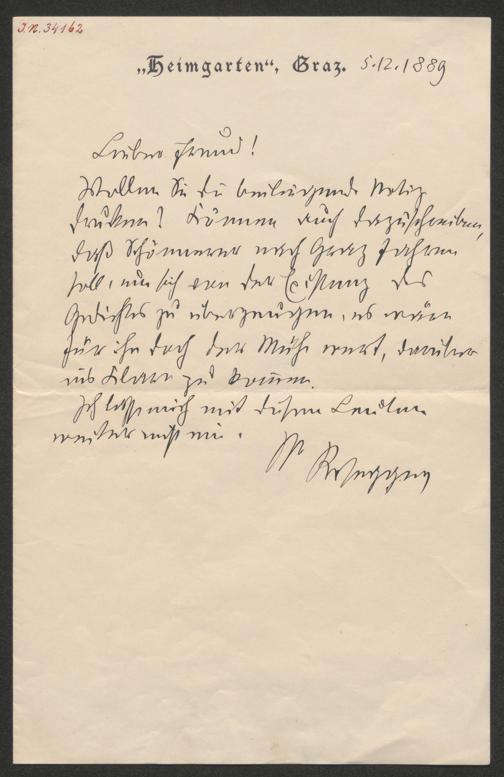 J.N. 34162
„Heimgarten“, Graz. 5.12.1889
Lieber Freund!
Wollen Sie die beiliegende Notiz
drucken? Können auch dazuschreiben,
daß Schönerer nach Graz fahren
soll, um sich von der Existenz des
Gedichtes zu überzeugen, es wäre
für ihn doch der Mühe wert, darüber
ins Klare zu kommen.
Ich lasse mich mit diesen Leuten
weiter nicht ein.
Ihr
Rosegger